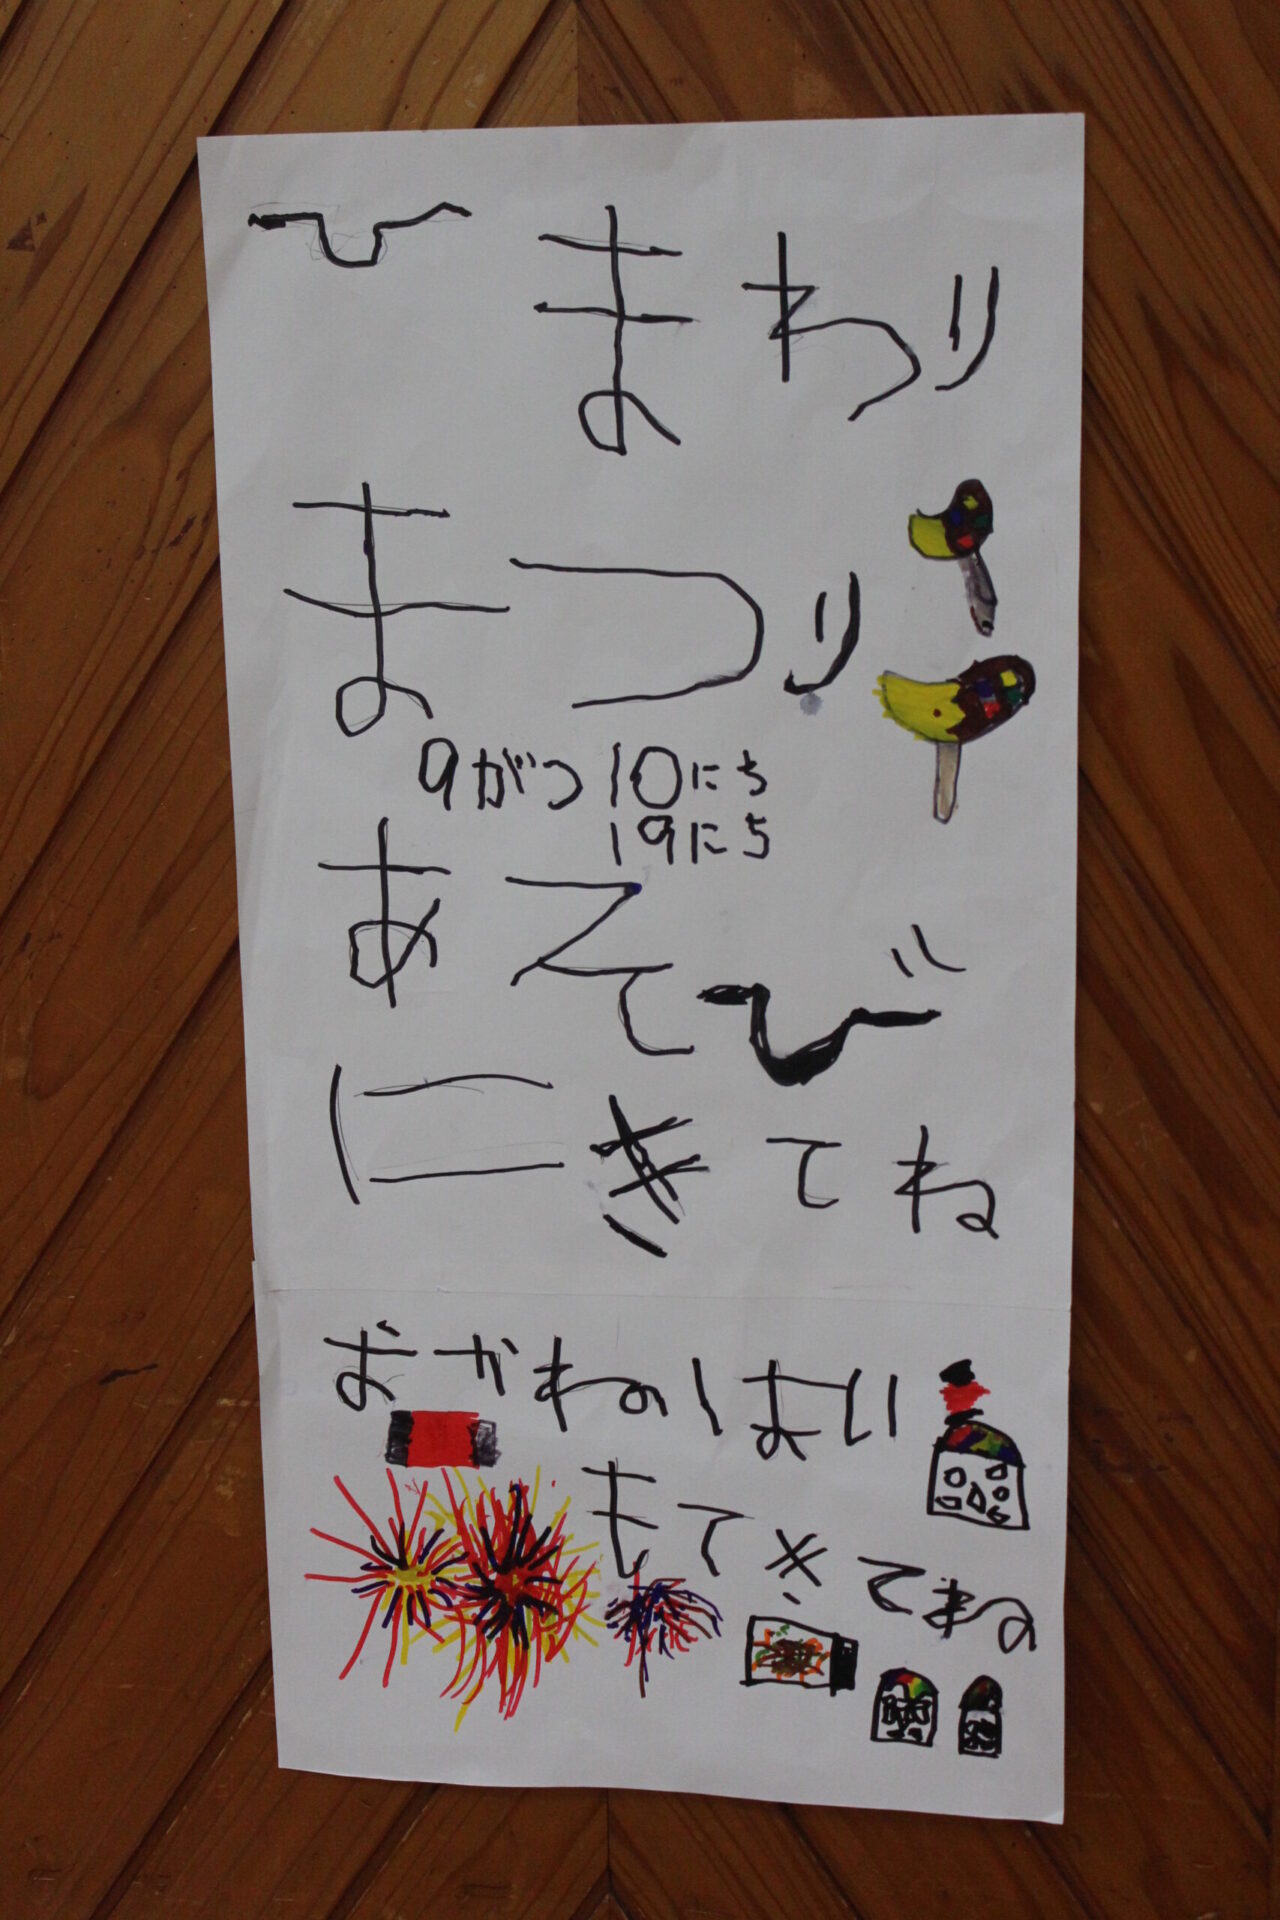 ひまわり
まつり
9がつ10にち
19にち
あそび
にきてね
おかねいはい
もてきてね